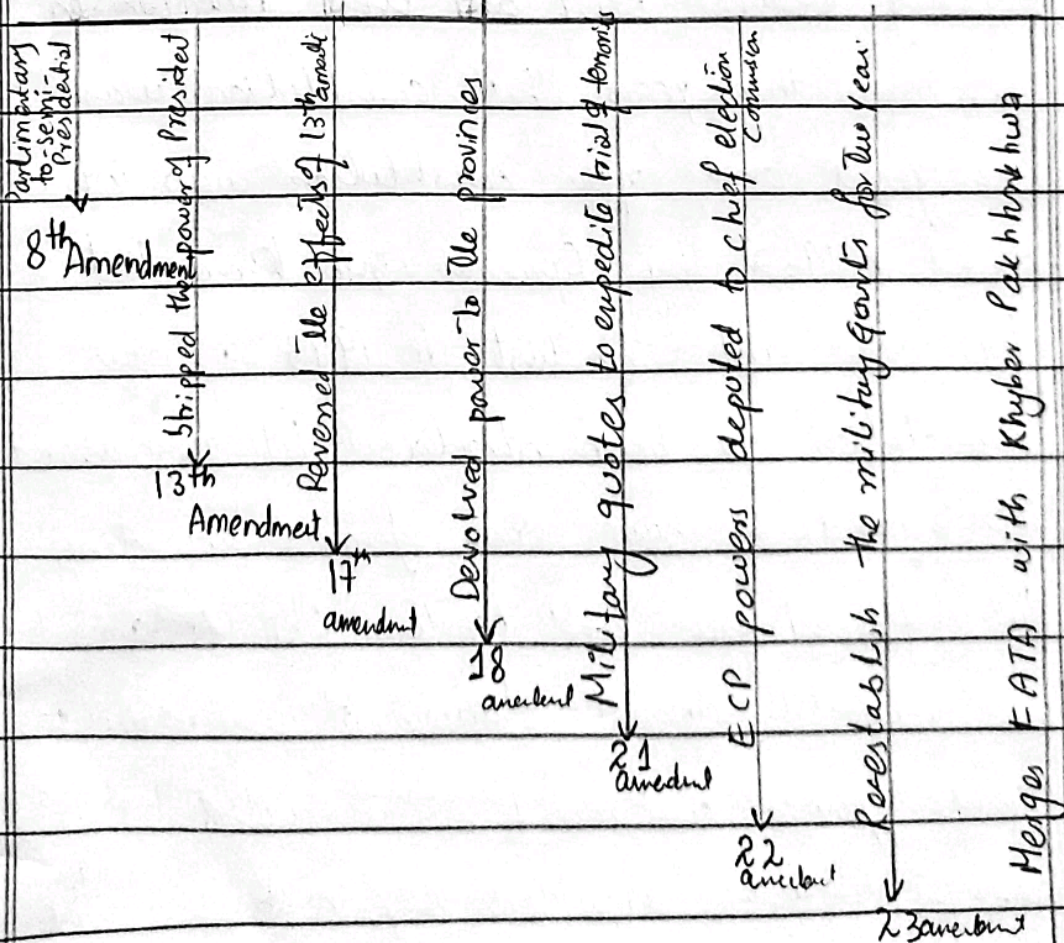 Parlimentary
to-semi-
Presidential
8th Amendment
Stripped the power of President
13th
Amendment
Reversed the effects of 13th
17th
amendment
Devolved power to the provinces
18
amendment
Military quotes to expedite trial of
21
amendment
ECP powers depoted to chief election
Commission
22
amendment
Reestablish the military courts for two year
23 amendment
Merges FATA with Khyber Pakhhnkhwa